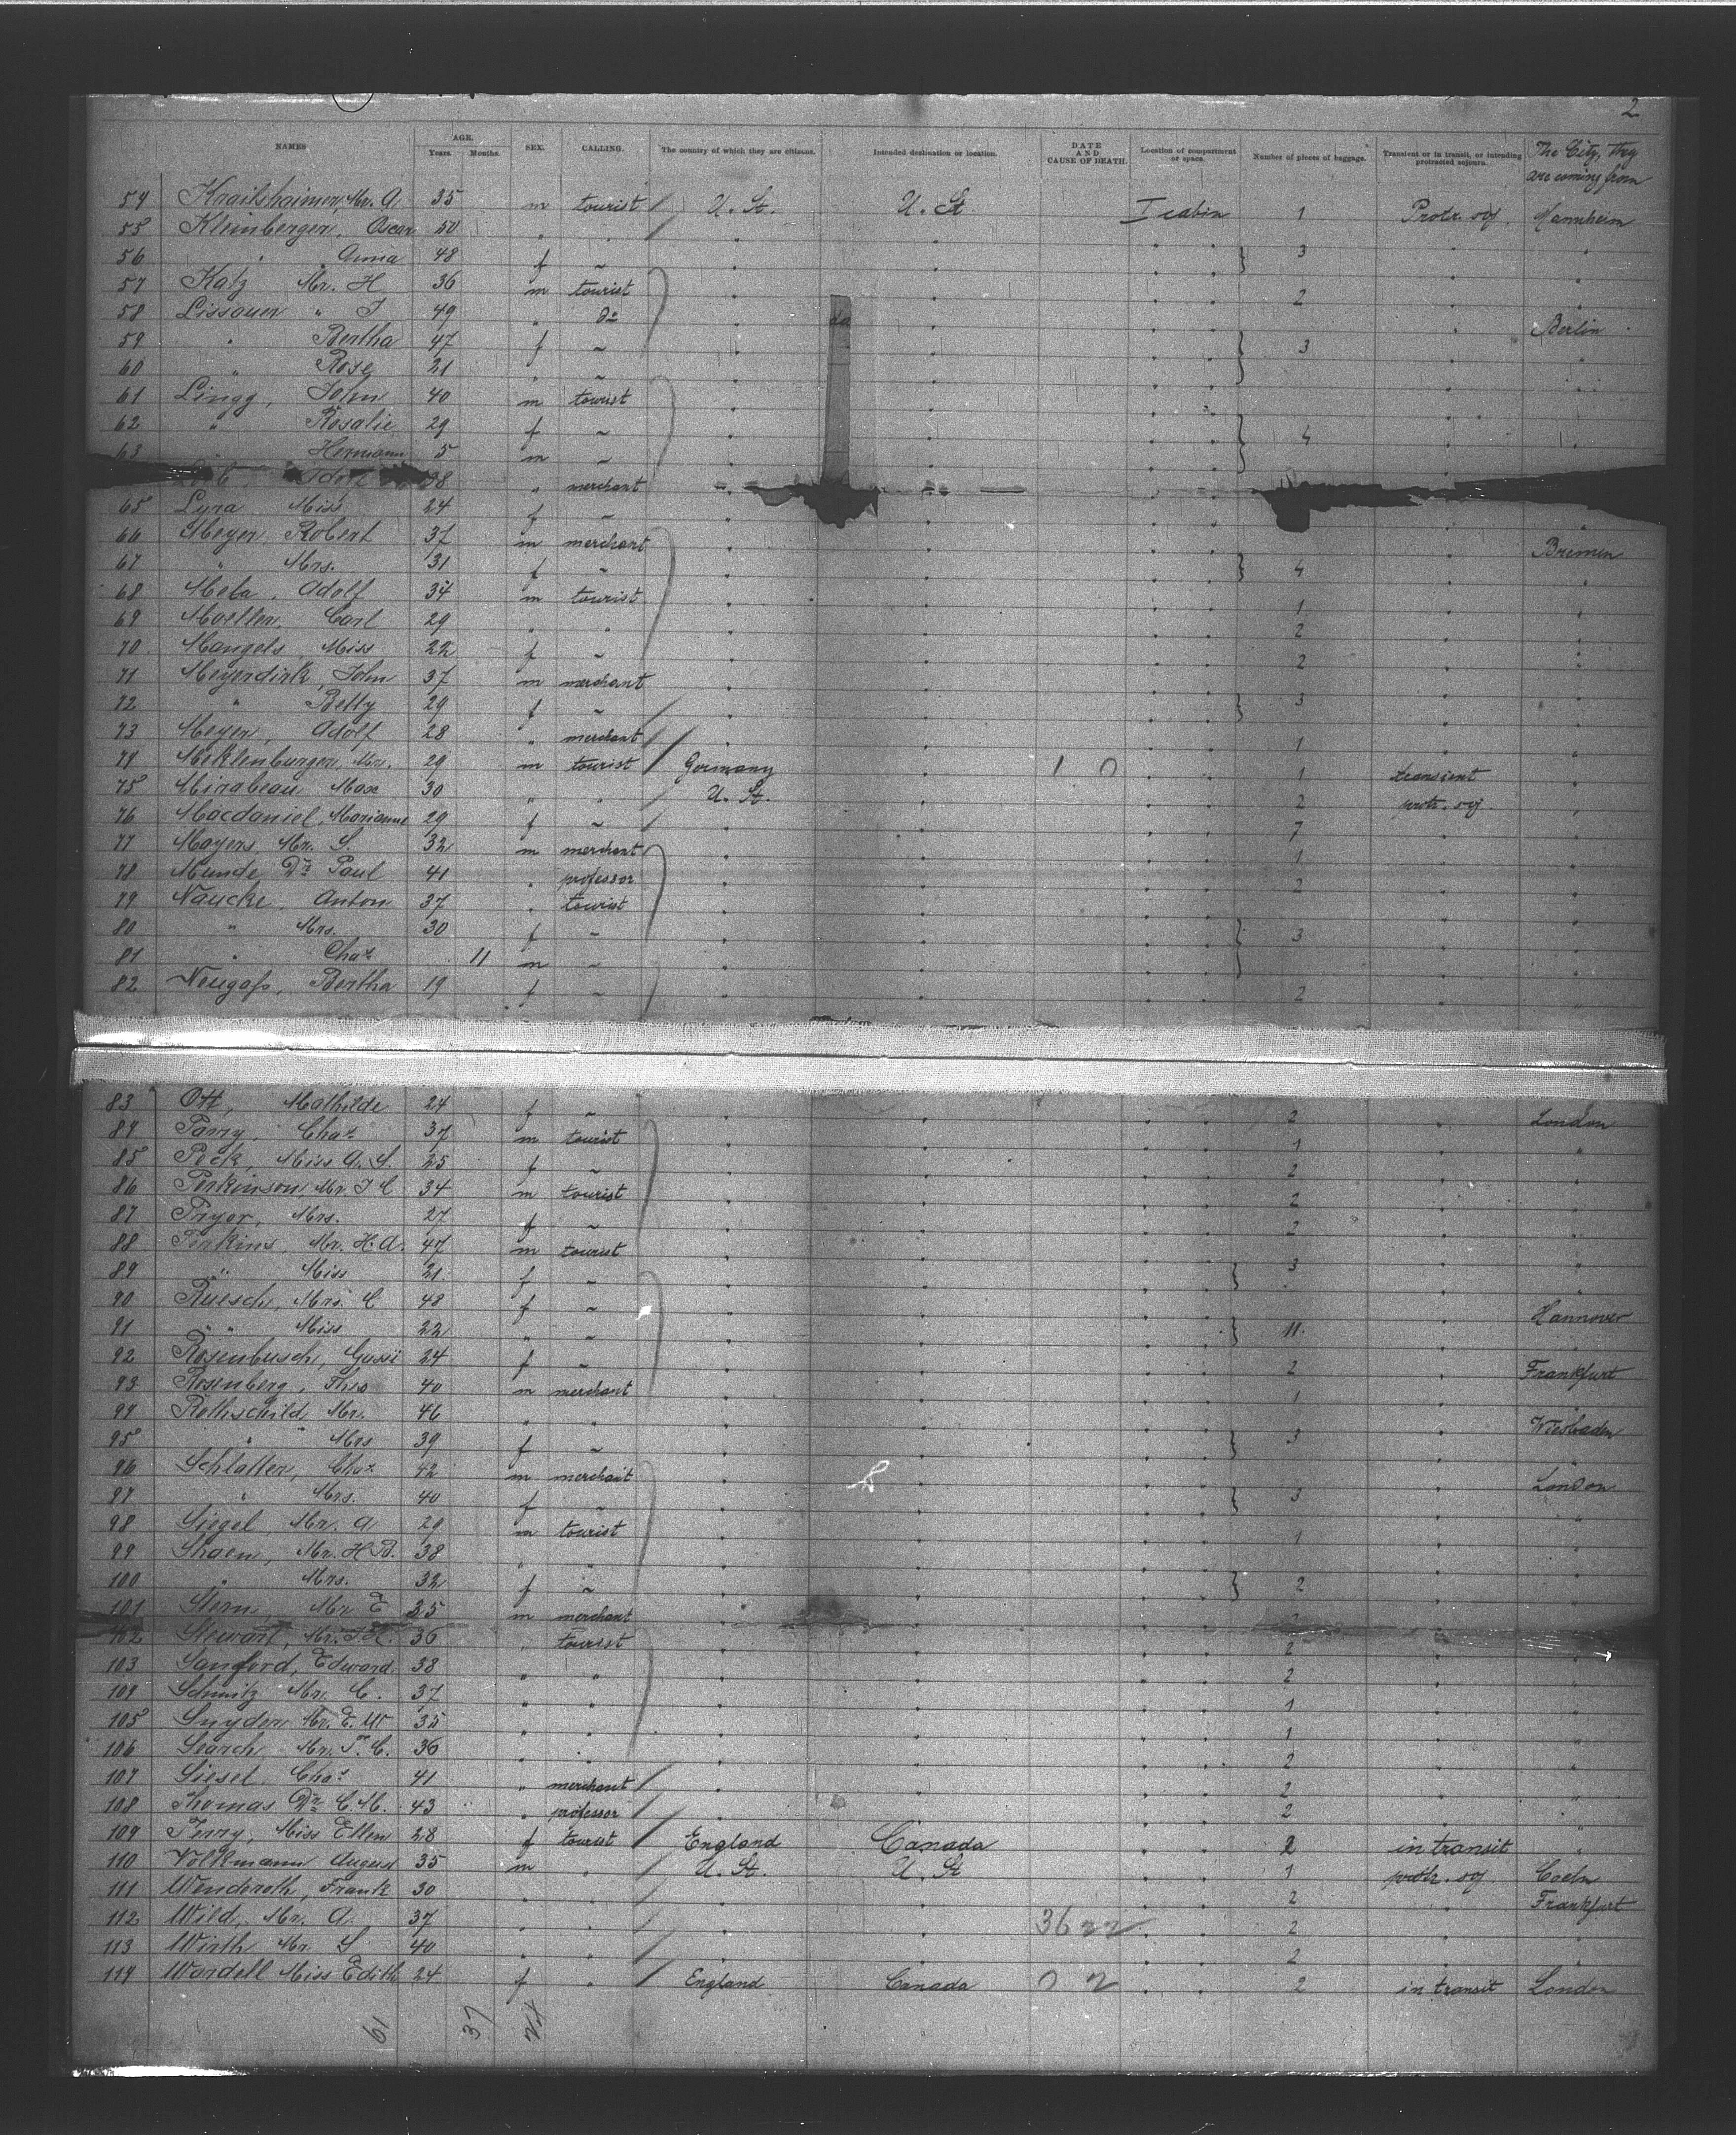 2
NAMES AGE. Years. Months. SEX. CALLING. The country of which they are citizens. Intended destination or location. DATE AND CAUSE OF DEATH. Location of compartment or space. Number of pieces of baggage. Transient or in transit, or intending protracted sojourn. The City, they are coming from
54 Krailshaimer, Mr. A. 35 m tourist / U. St. U. St I cabin 1 Protr. soj Mannheim
55 Kleinberger, Oscar 50 " " /
56 " Anna 48 f ~ } 3
57 Katz Mr. H 36 m tourist 2
58 Lissauer " J 49 " do do Berlin
59 " Bertha 47 f ~ } 3
60 " Rose 21 " ~
61 Lingg, John 40 m tourist
62 " Rosalie 29 f ~ } 4
63 " Hermann 5 m ~
38 " merchant
65 Lyra Miss 24 f ~
66 Meyer, Robert 37 m merchant Bremen
67 " Mrs. 31 f ~ } 4
68 Meta, Adolf 34 m tourist 1
69 Moeller, Carl 29 " " 2
70 Mangels, Miss 22 f ~ 2
71 Meyerdirk, John 37 m merchant
72 " Betty 29 f ~ / } 3
73 Meyer, Adolf 28 " merchant / 1
74 Meklenburger, Mr. 29 m tourist / Germany 1 0 1 transient
75 Mirabeau Max 30 " " / U. St. 2 protr. soj
76 Macdaniel, Marianne 29 f ~ / 7
77 Mayers Mr. S. 32 m merchant 1
78 Munde Dr Paul 41 " professor 2
79 Naucke Anton 37 " tourist
80 " Mrs. 30 f ~ } 3
81 " Chas 11 m ~
82 Neugass, Bertha 19 f ~ 2
83 Ott, Mathilde 24 f ~ 2 London
84 Parry, Chas 37 m tourist 1
85 Peck, Miss A. S. 25 f ~ 2
86 Perkinson, Mr. J C 34 m tourist 2
87 Pryor, Mrs. 27 f ~ 2
88 Perkins, Mr. H. A. 47 m tourist
89 " Miss 21 f ~ } 3
90 Ruesch, Mrs. C 48 f ~ Hannover
91 " " Miss 22 " ~ } 11.
92 Rosenbusch, Gussi 24 f ~ 2 Frankfurt
93 Rosenberg, Theo 40 m merchant 1
94 Rothschild Mr. 46 " " Wiesbaden
95 " " Mrs 39 f ~ } 3
96 Schlatter, Chas 42 m merchant London
97 " Mrs. 40 f ~ } 3
98 Siegel, Mr. A 29 m tourist 1
99 Shaen, Mr. H B. 38 " "
100 " Mrs. 32 f ~ } 2
101 Stern, Mr E 35 m merchant 2
102 Stewart, Mr. 36 " tourist 2
103 Sanford, Edward 38 " " 2
104 Schmitz Mr. C. 37 " " 1
105 Snyder Mr. E. W 35 " " 1
106 Search Mr. T. C. 36 " " 2
107 Siesel, Chas 41 " merchant / 2
108 Thomas Dr C. M. 43 " professor / 2
109 Terry, Miss Ellen 28 f tourist / England Canada 2 in transit
110 Volkmann August 35 m " / U. St. U. St 1 protr. soj Coeln
111 Wenderoth, Frank 30 " " / 2 Frankfurt
112 Wild, Mr. A. 37 " " / 36 22 2
113 Wirth Mr. S 40 " " / 2
114 Wardell Miss Edith 24 f " / England Canada 0 2 2 in transit London
61 37 24